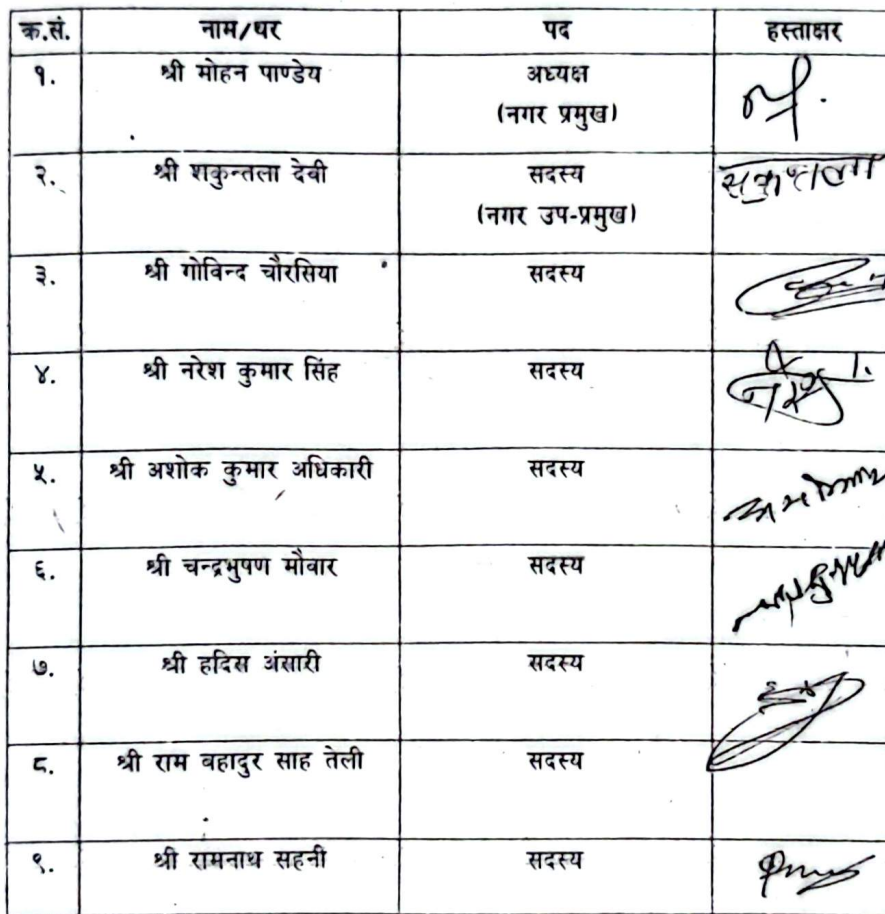 क्र.सं. नाम/थर पद हस्ताक्षर
१. श्री मोहन पाण्डेय अध्यक्ष
(नगर प्रमुख)
२. श्री शकुन्तला देवी सदस्य
(नगर उप-प्रमुख)
३. श्री गोविन्द चौरसिया सदस्य
४. श्री नरेश कुमार सिंह सदस्य
५. श्री अशोक कुमार अधिकारी सदस्य
६. श्री चन्द्रभुषण मौवार सदस्य
७. श्री हदिस अंसारी सदस्य
८. श्री राम बहादुर साह तेली सदस्य
९. श्री रामनाथ सहनी सदस्य